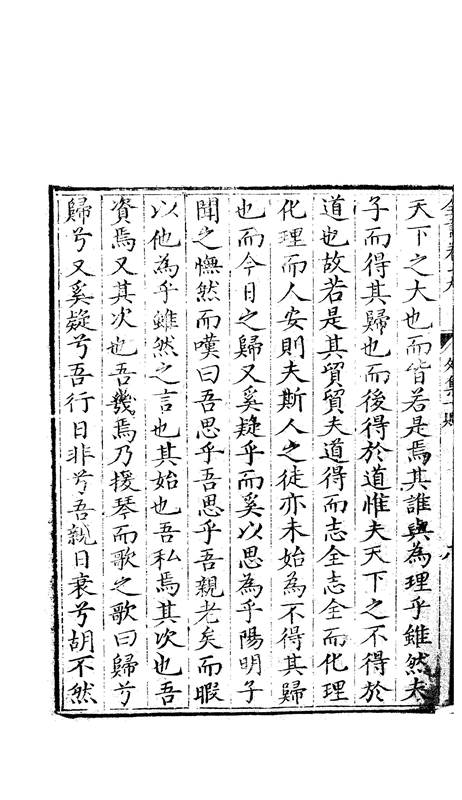 天下之大也而皆若是焉其誰與為理乎雖然夫
子而得其歸也而後得於道惟夫天下之不得於
道也故若是其貿貿夫道得而志全志全而化理
化理而人安則夫斯人之徒亦未始為不得其歸
也而今日之歸又奚疑乎而奚以思為乎陽明子
聞之憮然而嘆曰吾思乎吾思乎吾親老矣而暇
以他為乎雖然之言也其始也吾私焉其次也吾
資焉又其次也吾幾焉乃援琴而歌之歌曰歸兮
歸兮又奚疑兮吾行日非兮吾親日衰兮胡不然